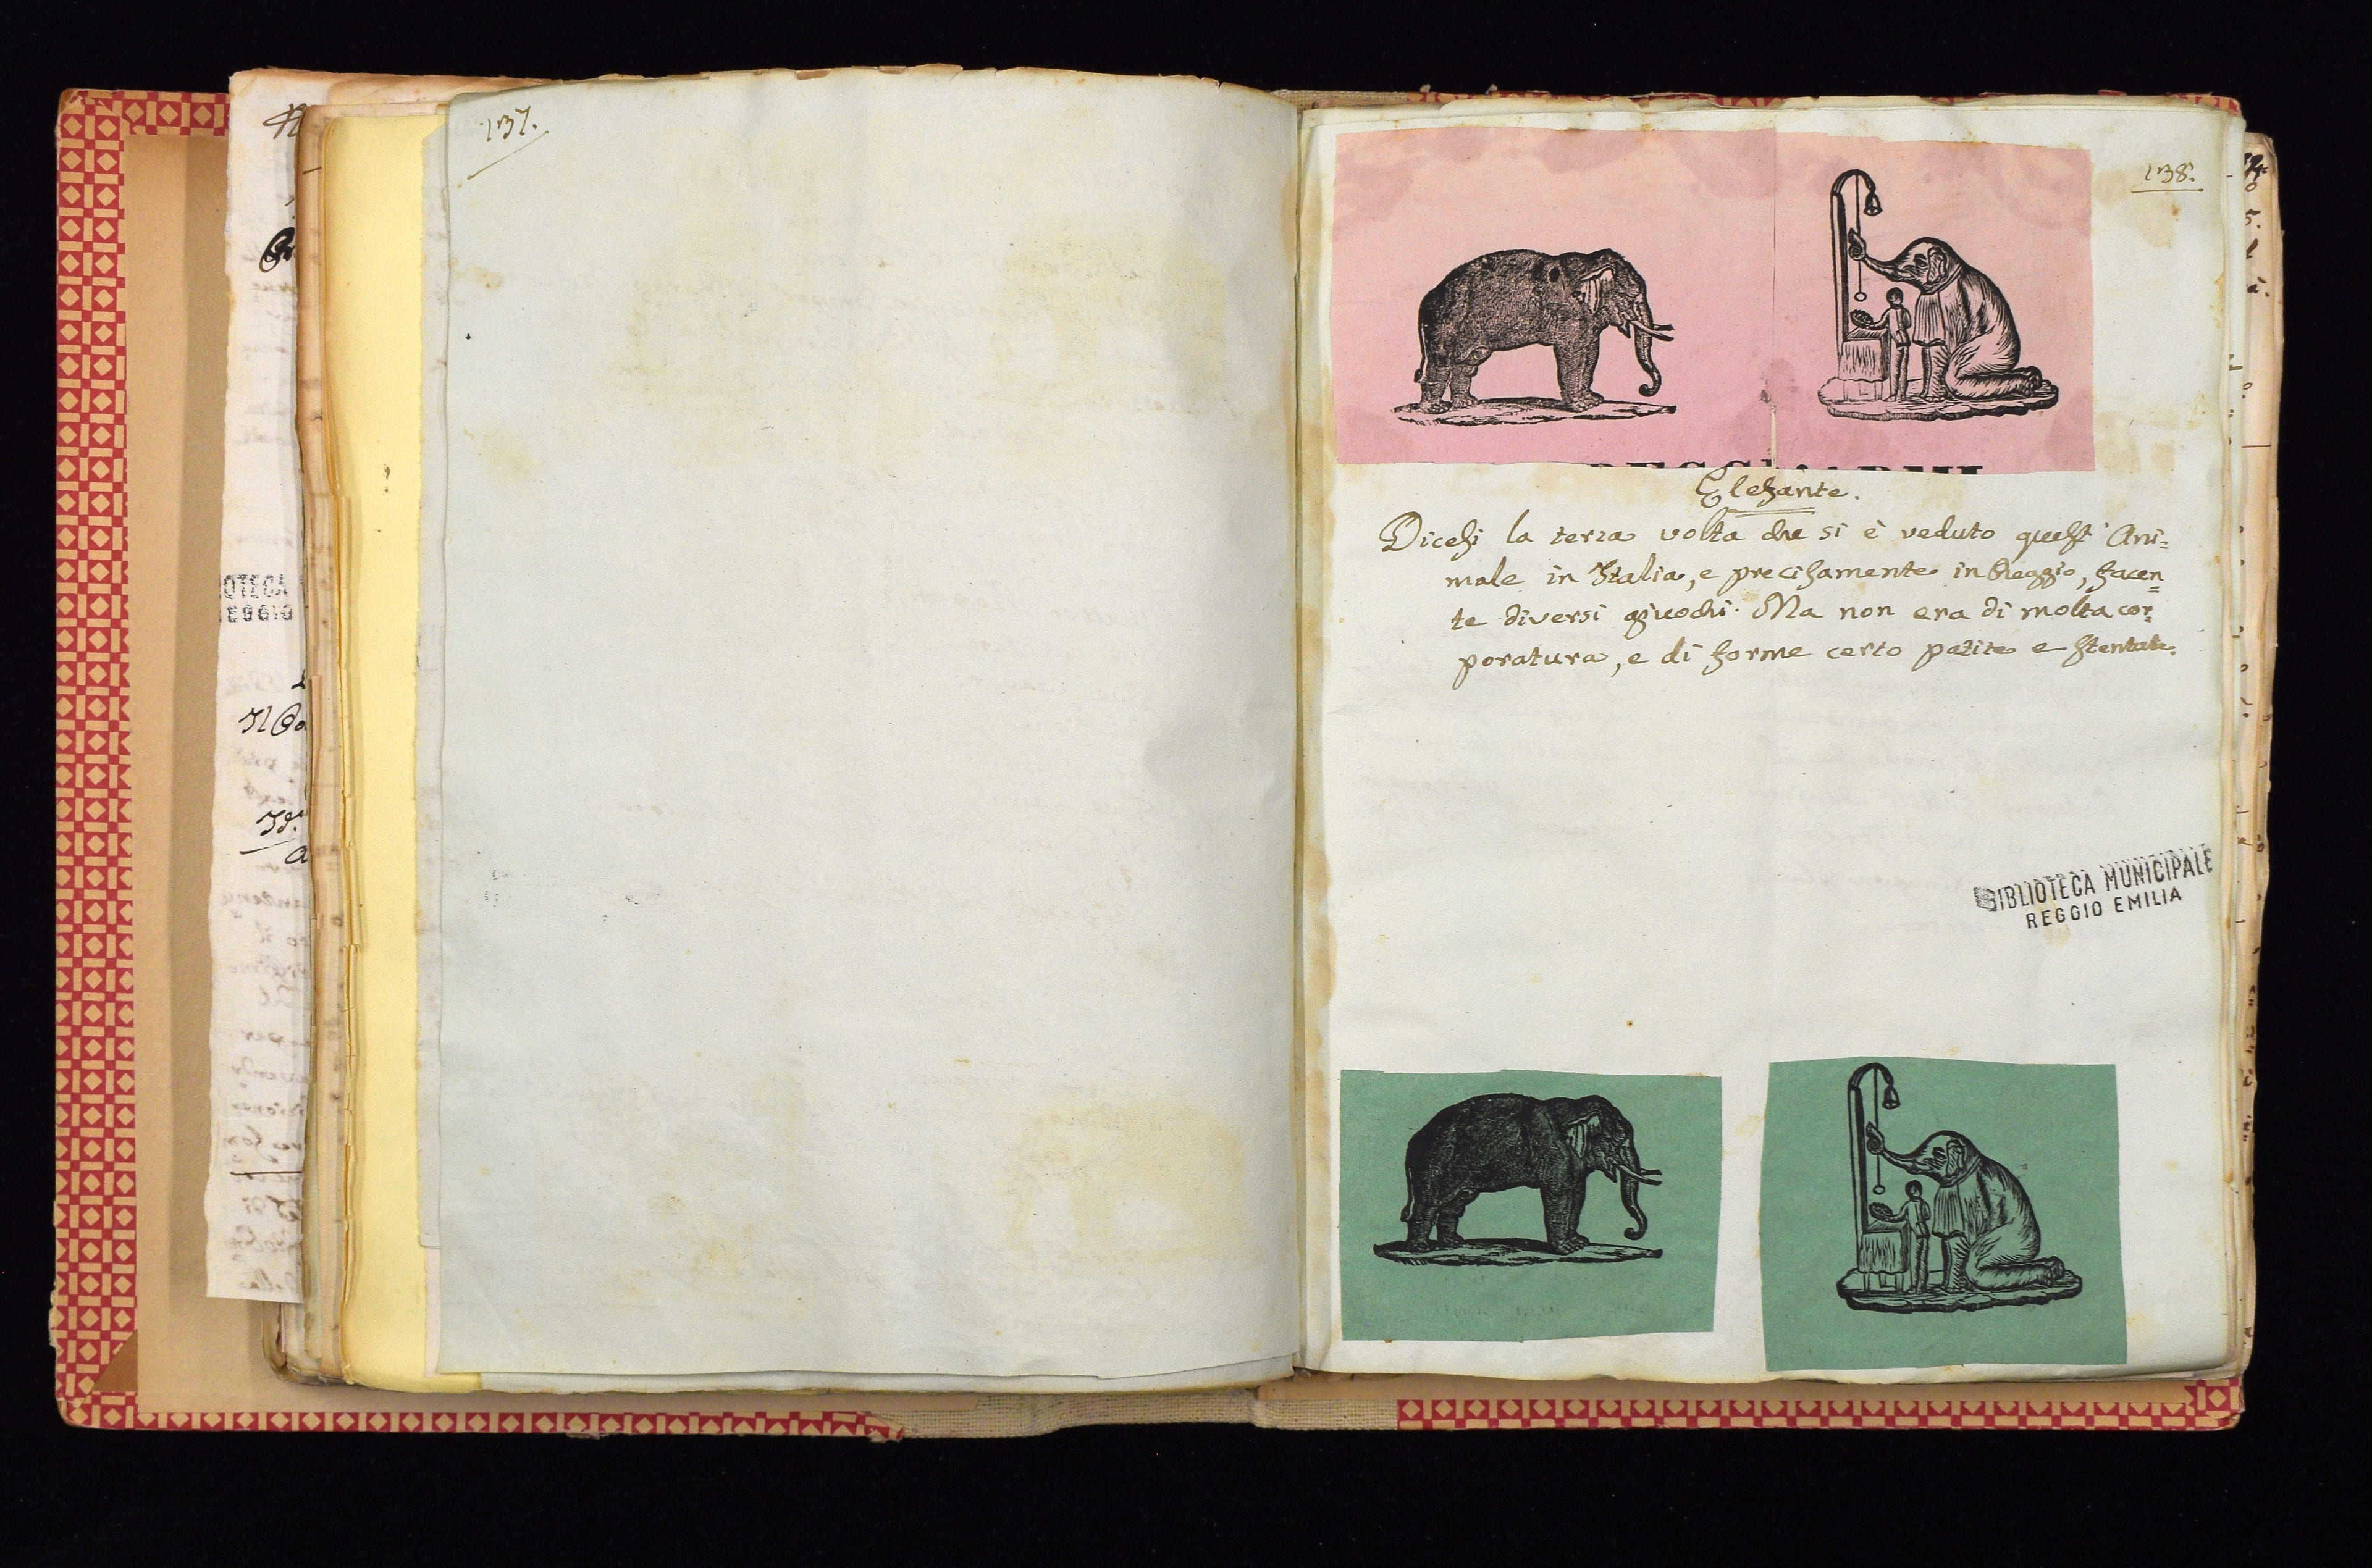 137.
138.
Elefante.
Dicesi la terza volta che si è veduto quest' Ani=
male in Italia, e precisamente in Reggio, facen=
te diversi giuochi. Ma non era di molta cor=
poratura, e di forme certo patite e stentate.
BIBLIOTECA MUNICIPALE
REGGIO EMILIA
OTECA
EGGIO